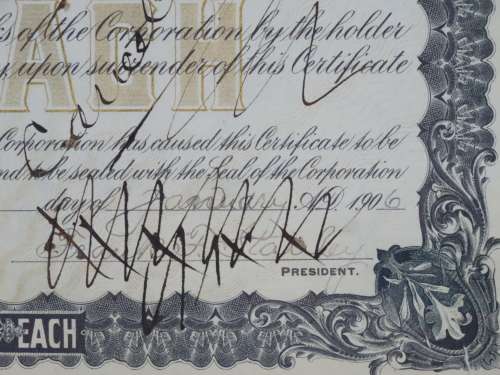 s of the Corporation by the holder
y, upon surrender of this Certificate
EACH
Corporation has caused this Certificate to be
nd to be sealed with the Seal of the Corporation
day of January A.D. 1906
PRESIDENT.
EACH